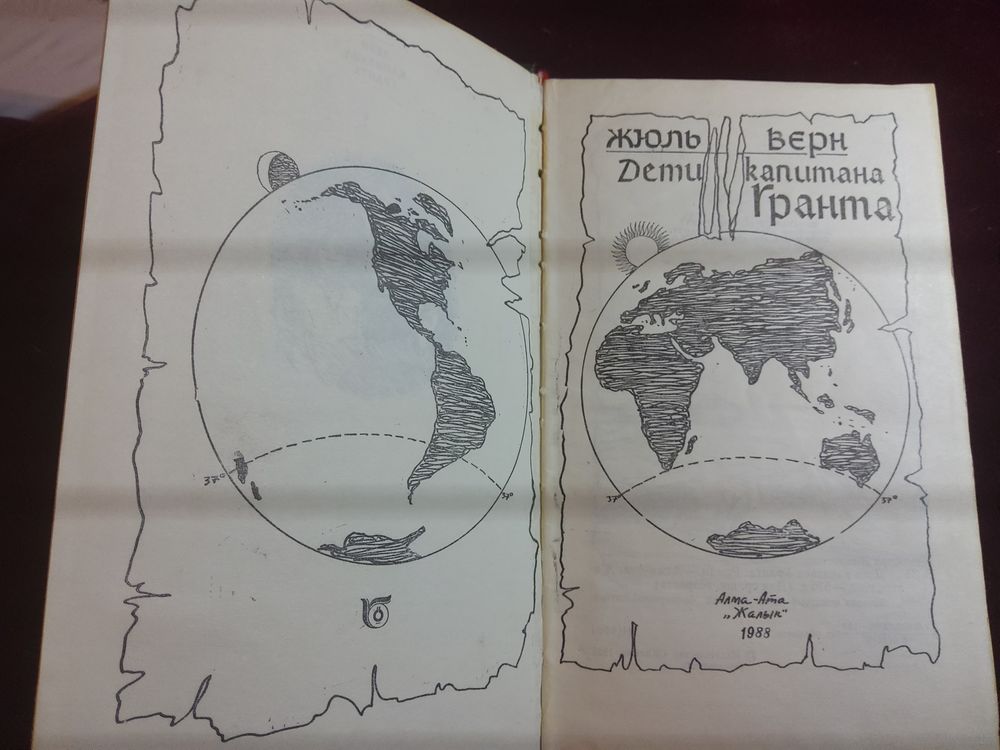 37°
37°
Жюль Верн
Дети капитана
Гранта
37°
37°
Алма-Ата
„Жалын“
1988